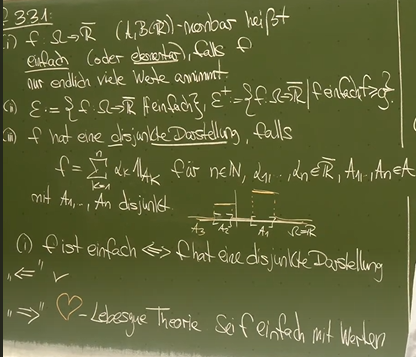 2.331:
i) f: Ω→ℝ̄ (A,B(ℝ̄))-messbar heißt
einfach (oder elementar), falls f
nur endlich viele Werte annimmt.
(ii) ℰ := {f: Ω→ℝ̄ | f einfach}, ℰ⁺ := {f: Ω→ℝ̄ | f einfach f ≥ 0}.
(iii) f hat eine disjunkte Darstellung, falls
f = ∑_{k=1}^{n} α_k 𝟙_{A_k} für n∈ℕ, α₁,...,α_n∈ℝ̄, A₁,...,A_n∈A
mit A₁,...,A_n disjunkt.
A₃ A₂ A₁ Ω=ℝ
(i) f ist einfach ⟺ f hat eine disjunkte Darstellung
"⇐" ✓
"⇒" ♡-Lebesgue Theorie Sei f einfach mit Werten